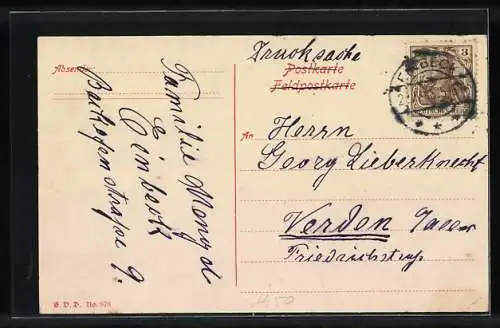 Drucksache
Postkarte
Feldpostkarte
3
Absender
Familie
Einbeck
Backofenstraße 9.
An
Herrn
Georg Lieberknecht
Verden
Friedrichstraße